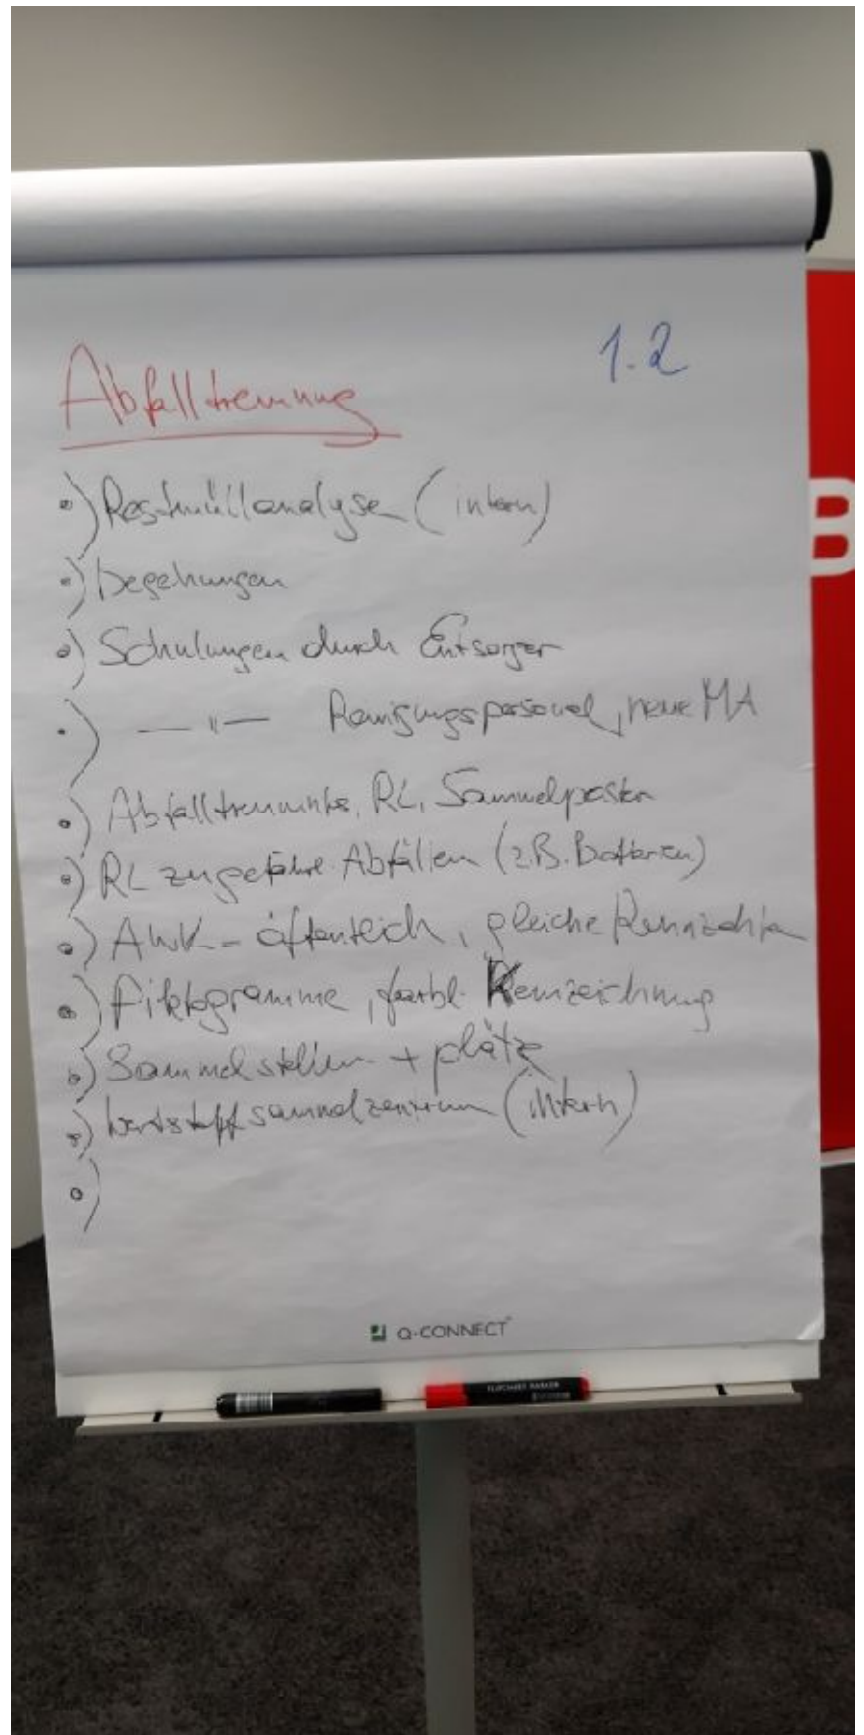 1.2
Abfalltrennung
°) Restmüllanalyse (intern)
°) Begehungen
°) Schulungen durch Entsorger
°) — " — Reinigungspersonal, neue MA
°) Abfalltrenninfos, RL, Sammelposter
°) RL zu gefährl. Abfällen (z.B. Batterien)
°) AWK - öffentlich, gleiche Kennzahlen
°) Piktogramme, farbl. Kennzeichnung
°) Sammelstellen + plätze
°) Wertstoffsammelzentrum (intern)
°)
B
Q-CONNECT
FLIPCHART MARKER